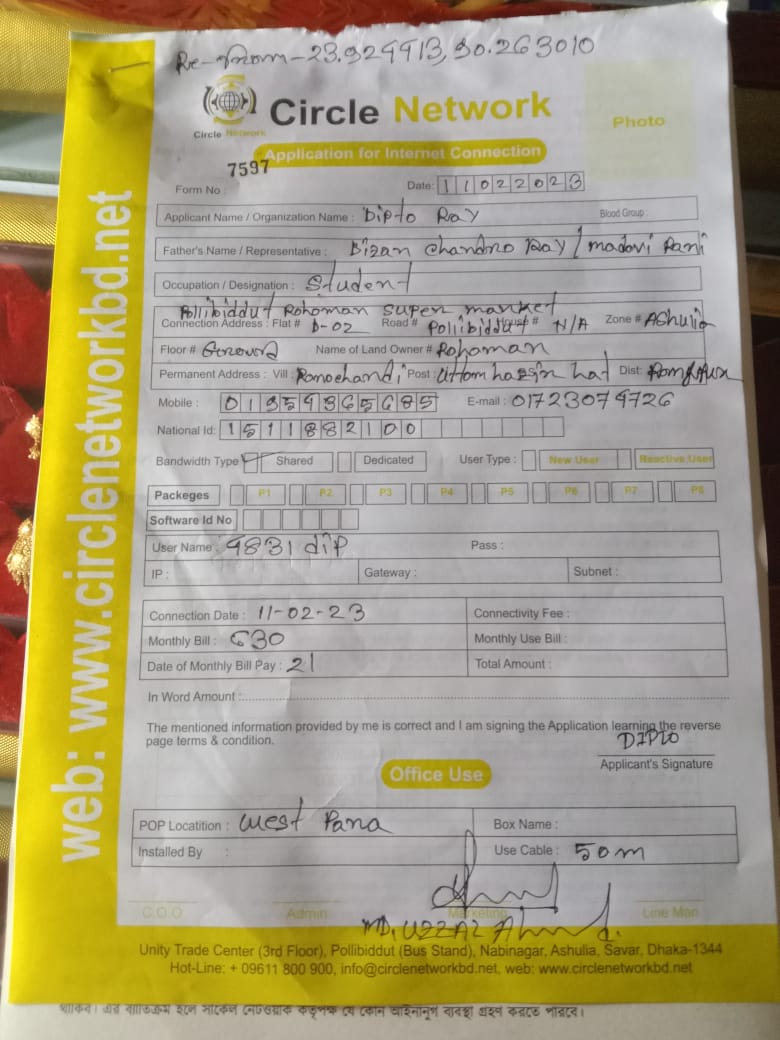 Re-কানেকশন-23.929913,90.263010
Circle Network
Circle Network
Photo
Application for Internet Connection
7597
Form No :
Date: 11022023
Applicant Name / Organization Name : Dipto Ray Blood Group :
Father's Name / Representative : Bizan Chandro Ray / madovi Rani
Occupation / Designation : Student
Pollibiddut Rohoman super market
Connection Address : Flat # D-02 Road # Pollibiddut N/A Zone # Ashulia
Floor # Name of Land Owner # Rohoman
Permanent Address : Vill : Ramochandi Post : Uttam hazin hat Dist:
Mobile : E-mail : 01723079726
National Id: 1511882100
Bandwidth Type Shared Dedicated User Type : New User Reactive User
Packeges P1 P2 P3 P4 P5 P6 P7 P8
Software Id No
User Name : 9831 dip Pass :
IP : Gateway : Subnet :
Connection Date : 11-02-23 Connectivity Fee :
Monthly Bill : 630 Monthly Use Bill :
Date of Monthly Bill Pay : 21 Total Amount :
In Word Amount :
The mentioned information provided by me is correct and I am signing the Application learning the reverse
page terms & condition.
DIPTO
Applicant's Signature
Office Use
POP Locatition : West Para Box Name :
Installed By : Use Cable : 50m
C.O.O Admin Marketing Line Man
MD. UZZAL Ahmed.
Unity Trade Center (3rd Floor), Pollibiddut (Bus Stand), Nabinagar, Ashulia, Savar, Dhaka-1344
Hot-Line: + 09611 800 900, info@circlenetworkbd.net, web: www.circlenetworkbd.net
থাকিব। এর ব্যতিক্রম হলে সার্কেল নেটওয়ার্ক কর্তৃপক্ষ যে কোন আইনানুগ ব্যবস্থা গ্রহণ করতে পারবে।
web: www.circlenetworkbd.net